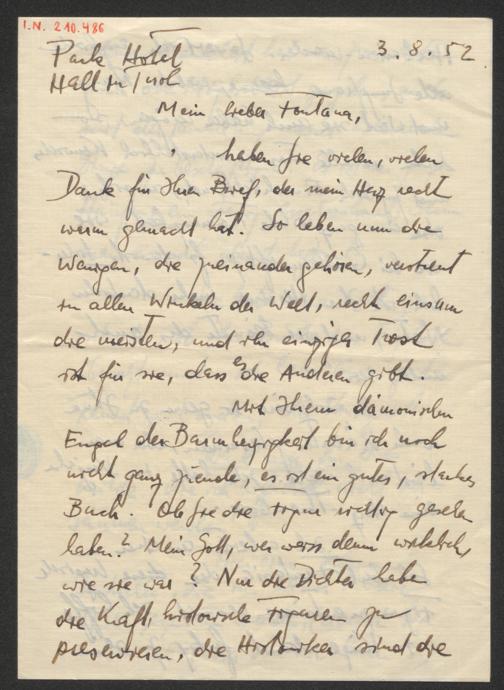 I.N. 210.486
Park Hotel
Hall in Tirol
3.8.52
Mein lieber Fontana,
haben Sie vielen, vielen
Dank für Ihren Brief, der mein Herz recht
warm gemacht hat. So leben nun die
Wenigen, die zueinander gehören, verstreut
in allen Winkeln der Welt, recht einsam
die meisten, und ihr einziger Trost
ist für sie, dass es die Anderen gibt.
Mit Ihrem dämonischen
Engel der Barmherzigkeit bin ich noch
nicht ganz zuende, es ist ein gutes, starkes
Buch. Ob Sie die Figur richtig gesehen
haben? Mein Gott, wer weiss denn wirklich,
wie sie war? Nur die Dichter haben
die Kraft, historische Figuren zu
präsentieren, die Historiker sind die